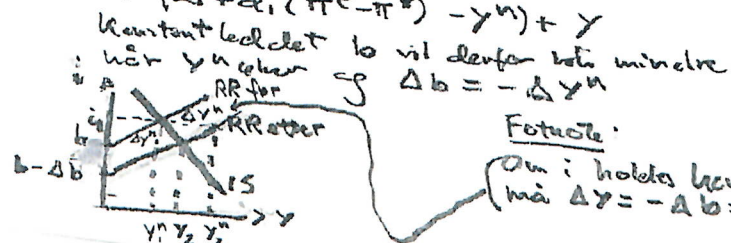 (π^e - π*) - yⁿ) + y
Konstantleddet b vil derfor bli mindre
når yⁿ øker og Δb = -Δyⁿ
i
RR før
i₁
Δyⁿ
RR etter
b
Δyⁿ
b-Δb
IS
y
y₁ⁿ y₂ y₂ⁿ
Fotnote:
Om i holdes
må Δy = -Δb =